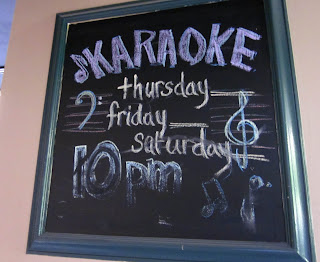 KARAOKE
thursday
friday
saturday
10pm